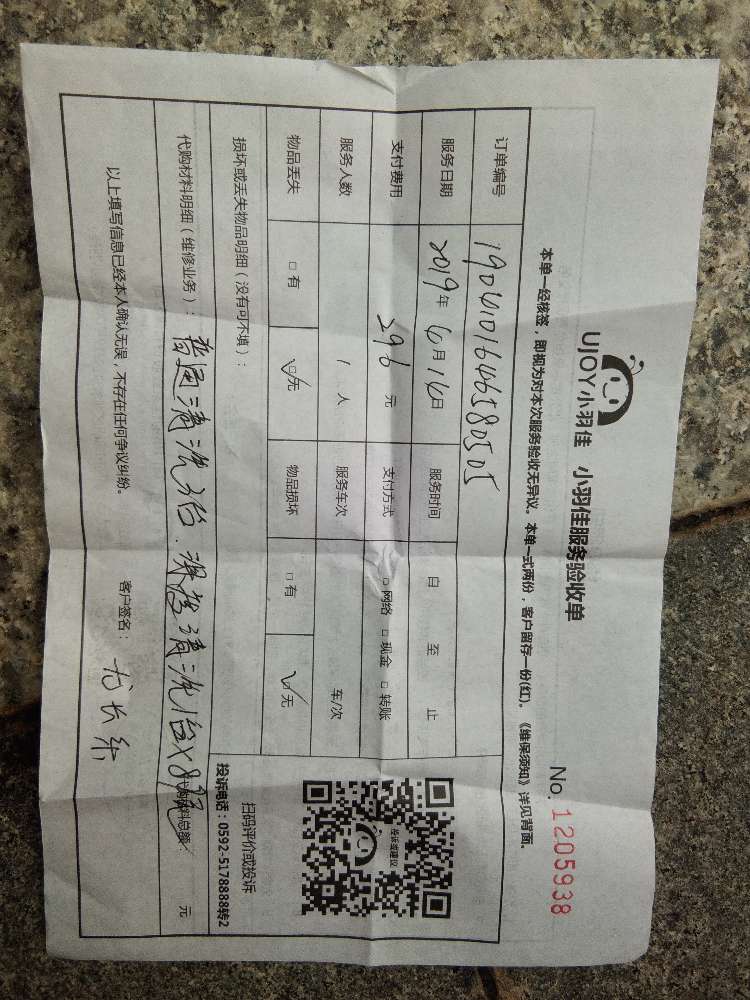 UJOY小羽佳 小羽佳服务验收单
No. 1205938
本单一经核签，即视为对本次服务验收无异议。本单一式两份，客户留存一份(红)。《维保须知》详见背面。
订单编号
服务日期 2019年 6月16日 服务时间 自 至 止
支付费用 296 元 支付方式 □网络 □现金 □转账
服务人数 1 人 服务车次 车/次
物品丢失 □有 ☑无 物品损坏 □有 ☑无
损坏或丢失物品明细（没有可不填）：
投诉或建议
扫码评价或投诉
投诉电话：0592-5178888转2
代购材料明细（维修业务）： 普通清洗 清洗1台×8 代购材料总额： 元
以上填写信息已经本人确认无误，不存在任何争议纠纷。 客户签名：